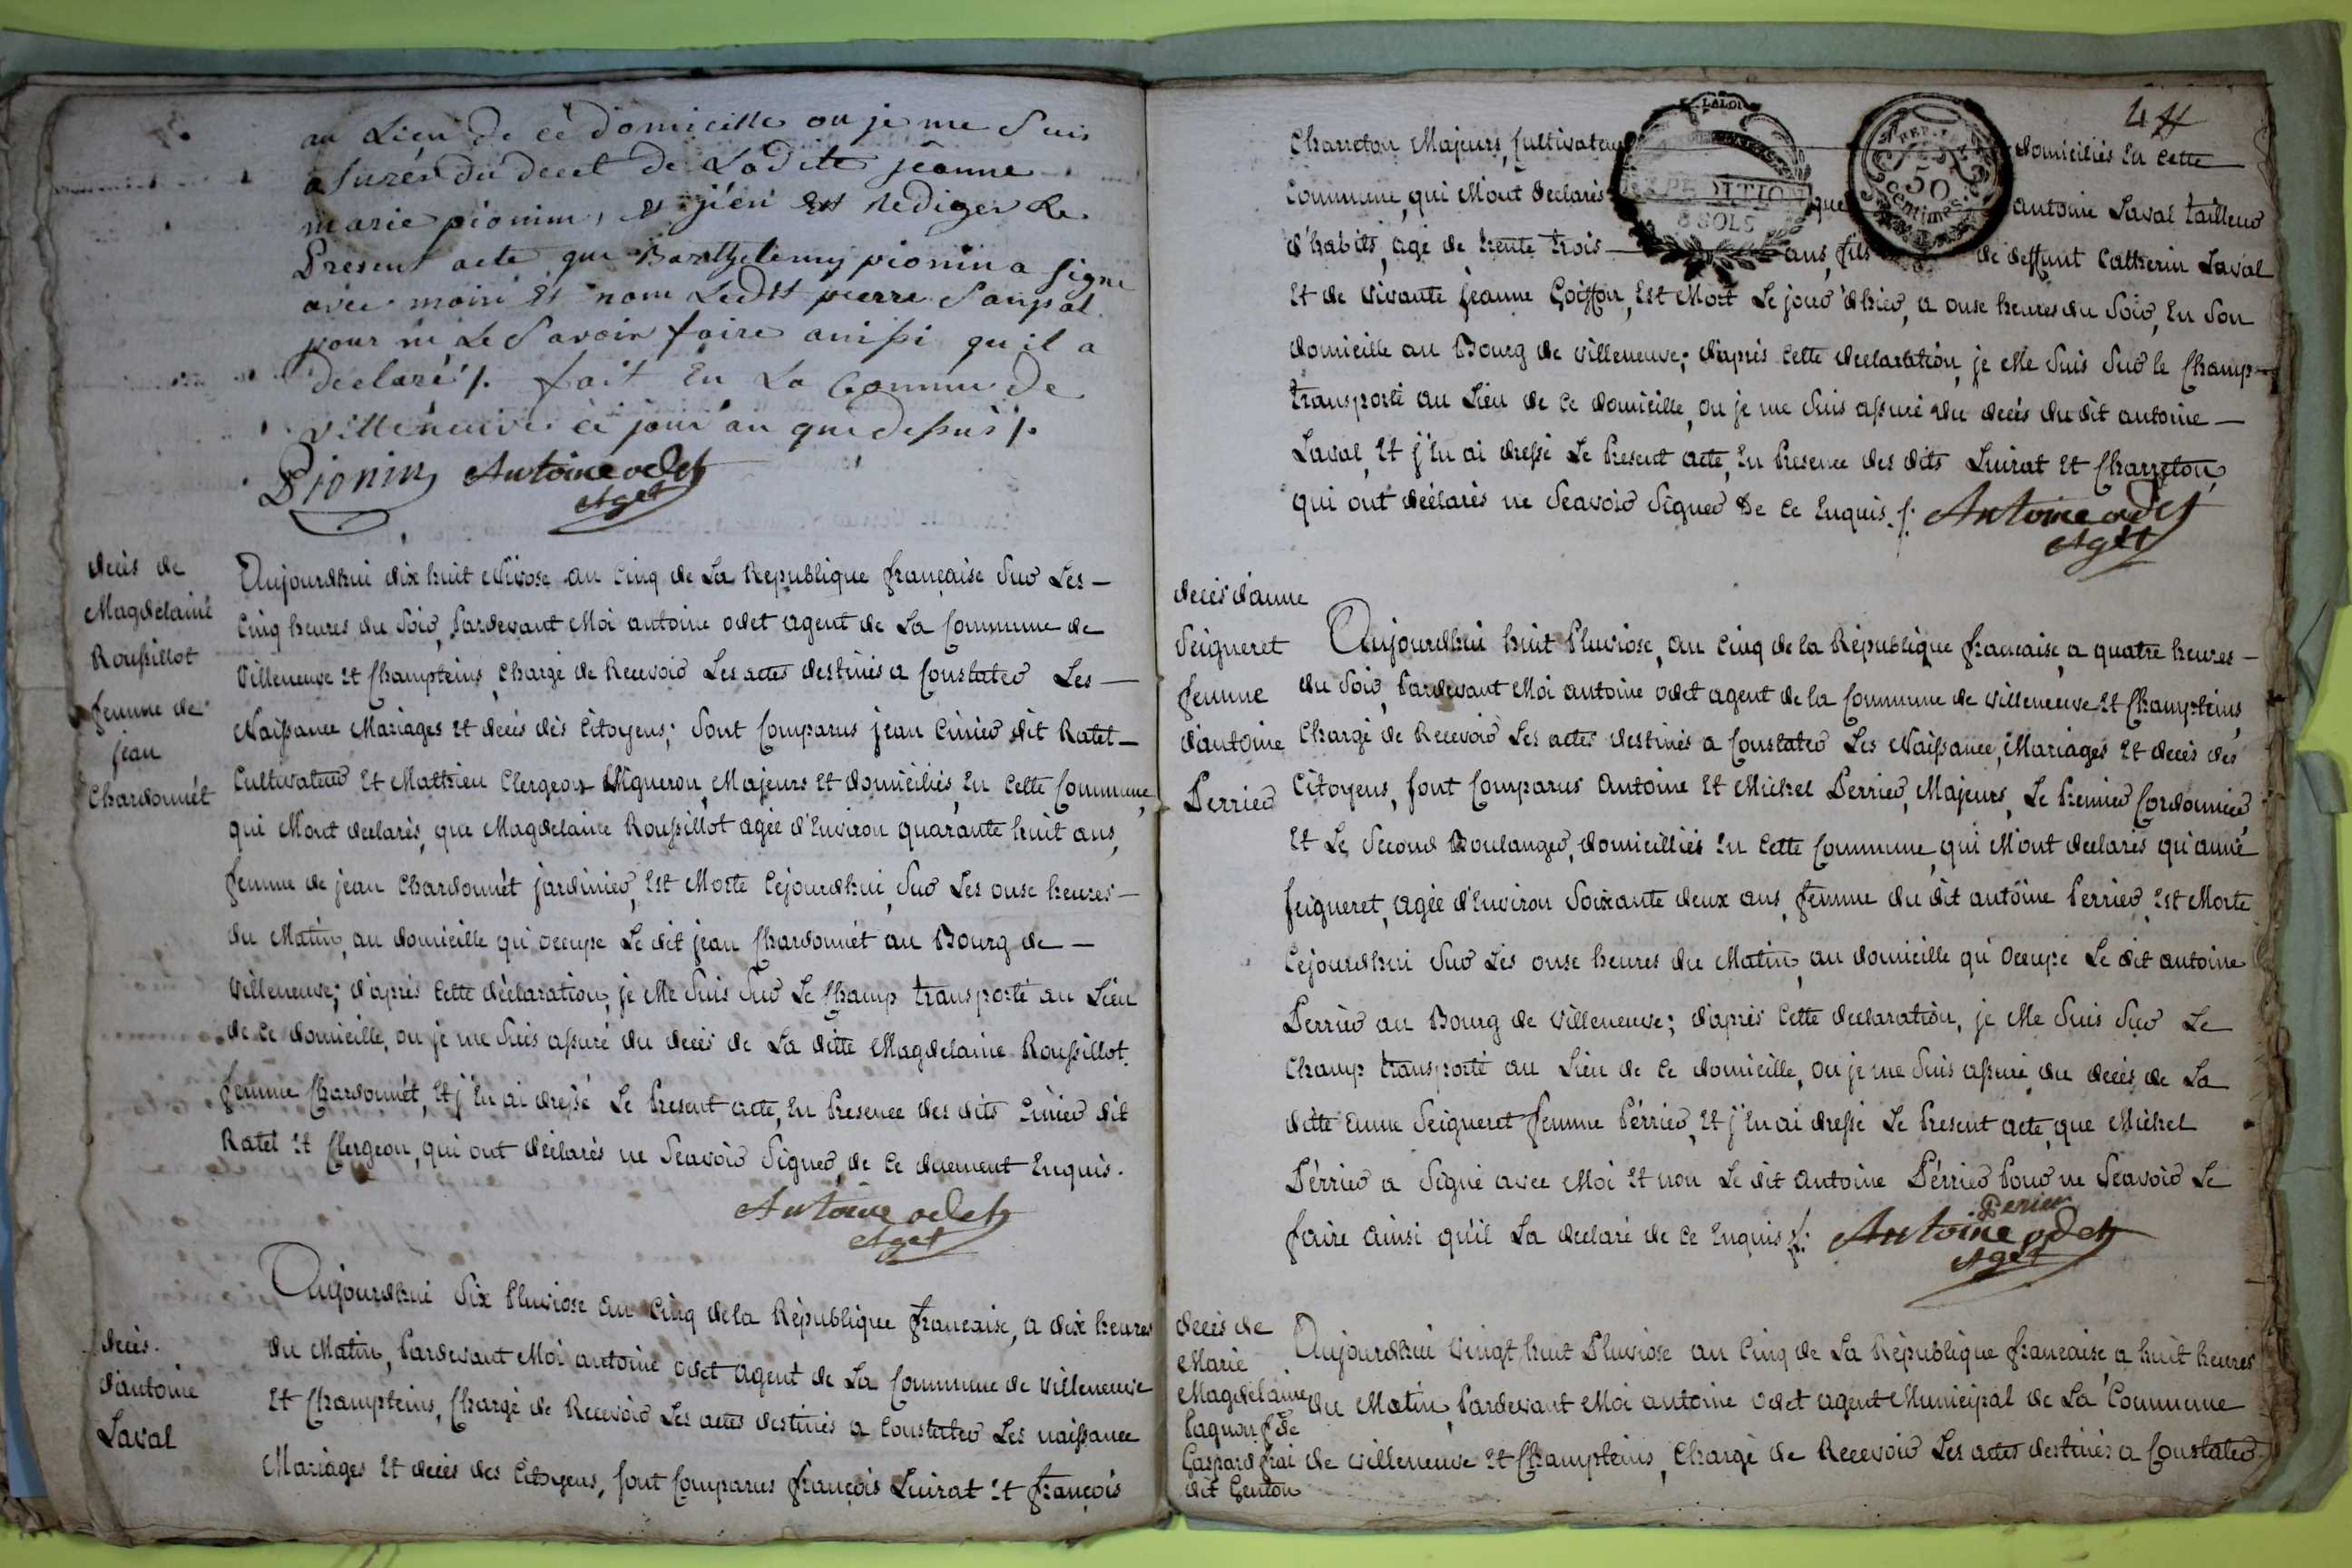 au Lieu de cè domicille ou je me Suis
assurér du decet de Ladite jeanne
marie pionin, et j'en est Rediger Le
Present acte que Barthelemy pionin a signe
avec moiri et nom Ledit pierre
pour ni Le Savoir faire ainssi qu'il a
declaré /. fait En La Commu de
villéneuve cè jour an que dessus /.
Pionin Antoine odet
Aget
decès de
Magdelaine
Roussillot
femme de
jean
Chardonnét
Aujourdhui dix huit Nivose an Cinq de La Republique française Sur Les
Cinq heures du Soir, Pardevant Moi antoine odet agent de La Commune de
Villeneuve et Champteins, Chargé de Recevoir Les actes destinés a Constater Les
Naissance Mariages et decès dès Citoyens; Sont Comparus jean Cinier dit Ratet
Cultivateur et Mathieu Clergeon Vigneron, Majeurs et domiciliés, En Cette Commune,
qui M'ont declarés, que Magdelaine Roussillot agée d'Environ quarante huit ans,
femme de jean Chardonnét jardinier, Est Morte Cejourdhui, Sur Les onse heures
du Matin, au domicille qu'occupe Le dit jean Chardonnét au Bourg de
Villeneuve; d'après Cette déclaration, je Me Suis Sur Le Champ transporté au Lieu
de Ce domicille, ou je me Suis assuré du decès de La ditte Magdelaine Roussillot
femme Chardonnét, Et j'En ai dressé Le Present acte, En Presence des dits Cinier dit
Ratet et Clergeon, qui ont déclarés ne Seavoir Signer, de Ce duement Enquis.
Antoine odet
Aget
decès
d'antoine
Laval
Aujourdhui Six Pluviose an Cinq de la République francaise, a dix heures
du Matin, Pardevant Moi antoine odet agent de La Commune de Villeneuve
Et Champteins, Chargé de Recevoir Les actes destinés a Constater Les naissance
Mariages Et decès des Citoyens, sont Comparus françois Luirat Et françois
44
Charreton Majeurs, Cultivateurs domiciliés En Cette
Commune, qui M'ont declarés que antoine Laval tailleur
d'habits, agé de trente trois ans, fils de deffunt Catherin Laval
Et de Vivante jeanne Goiffon, Est Mort Le jour d'hier, a onse heures du Soir, En Son
domicille au Bourg de Villeneuve; d'après Cette declaration, je Me Suis Sur le Champ
transporté au Lieu de Ce domicille, ou je me Suis assuré du decès du dit antoine
Laval, Et j'En ai dressé Le Present acte, En Presence des dits Luirat Et Charreton,
qui ont déclarés ne Seavoir Signer De Ce Enquis /. Antoine odet
Aget
LA LOI
EXPEDITION
8 SOLS
REP. FRA
50
Centimes
decès d'anne
Seigneret
femme
d'antoine
Perrier
Aujourdhui huit Pluviose, an Cinq de la République francaise, a quatre heures
du Soir, Pardevant Moi antoine odet agent de la Commune de Villeneuve Et Champteins
Chargé de Recevoir Les actes destinés a Constater Les Naissance, Mariages Et decès des
Citoyens, sont Comparus Antoine Et Michel Perrier, Majeurs, Le Premier Cordonnier,
Et Le Second Boulanger, domicilliés En Cette Commune, qui M'ont declarés qu'anne
seigneret, agée d'Environ Soixante deux ans, femme du dit antoine Perrier, Est Morte
Cejourdhui Sur Les onse heures du Matin, au domicille qu'occupe Le dit antoine
Perrier au Bourg de Villeneuve; d'après Cette declaration, je Me Suis Sur Le
Champ transporté au Lieu de Ce domicille, ou je me Suis assuré du decès de La
ditte Enne Seigneret femme Périer, Et j'En ai dressé Le Present acte, que Michel
Périer a Signé avec Moi Et non Le dit Antoine Périer Pour ne Seavoir Le
faire ainsi qu'il La declaré de Ce Enquis /. Perier
Antoine odet
Aget
decès de
Marie
Magdelaine
Paquon fe de
Gaspard frai
dit Genton
Aujourdhui Vingt huit Pluviose an Cinq de La République francaise, a huit heures
du Matin, Pardevant Moi antoine odet agent Municipal de La Commune
de Villeneuve Et Champteins, Chargé de Recevoir Les actes destinés a Constater